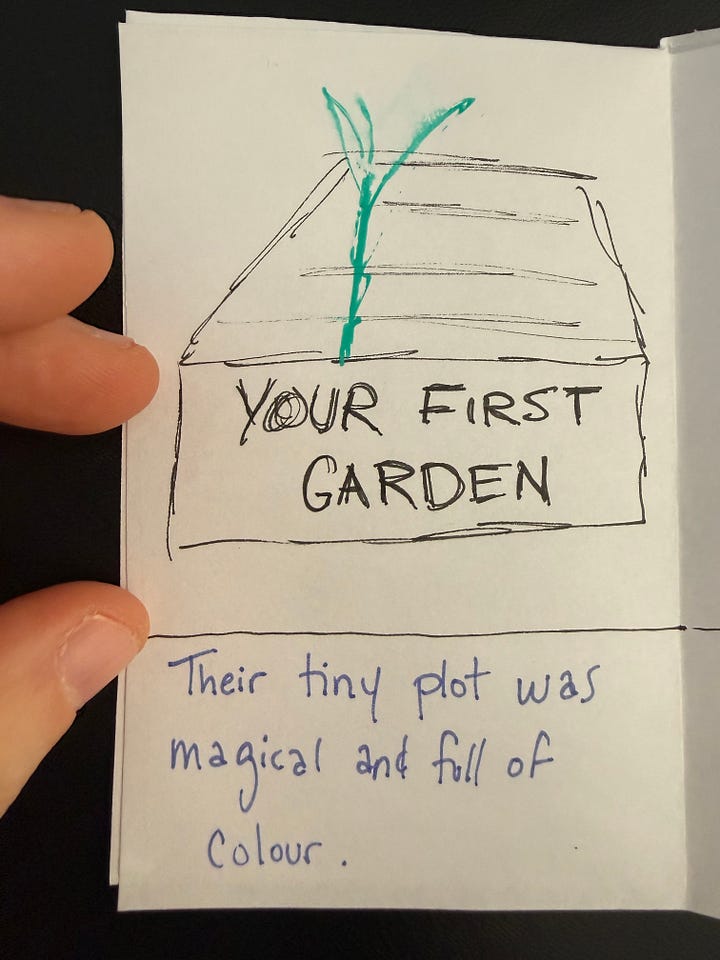 YOUR FIRST
GARDEN
Their tiny plot was
magical and full of
colour.